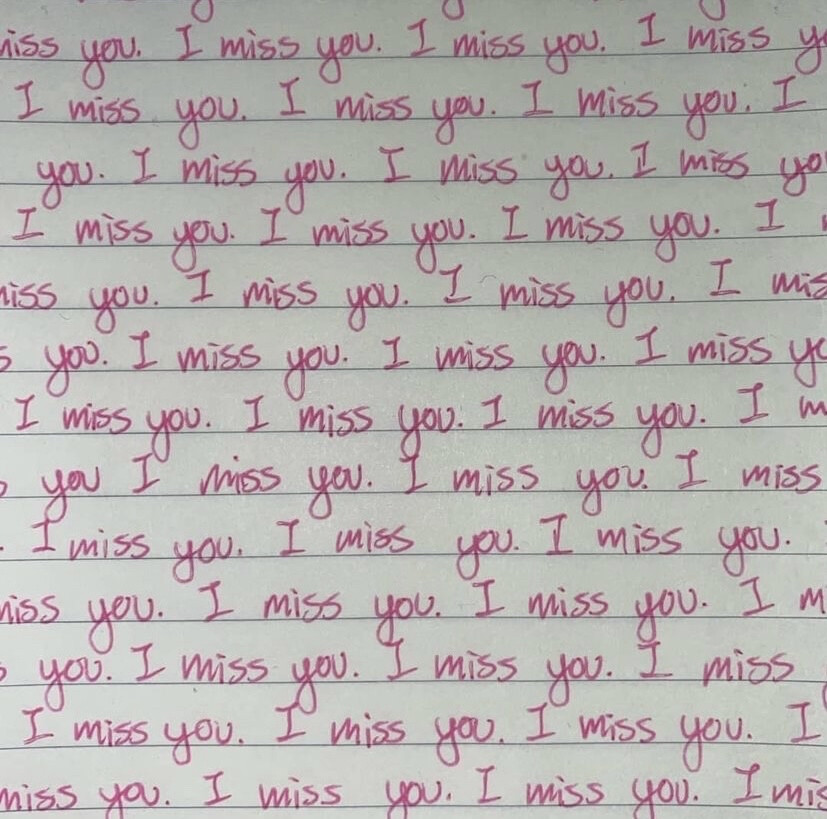 miss you. I miss you. I miss you. I miss yo
I miss you. I miss you. I miss you. I
you. I miss you. I miss you. I miss yo
I miss you. I miss you. I miss you. I
miss you. I miss you. I miss you. I mis
s you. I miss you. I miss you. I miss yo
I miss you. I miss you. I miss you. I m
you I miss you. I miss you. I miss
. I miss you. I miss you. I miss you.
miss you. I miss you. I miss you. I m
you. I miss you. I miss you. I miss
I miss you. I miss you. I miss you. I
miss you. I miss you. I miss you. I mis